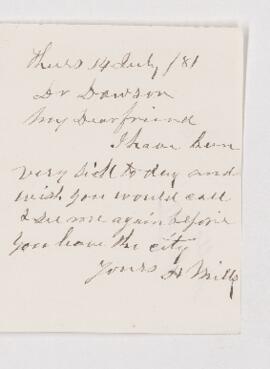 Thurs 14 July /81
Dr Dawson
My Dear friend
I have been
very sick to day and
wish you would call
& see me again before
you leave the city
Yours H Mills